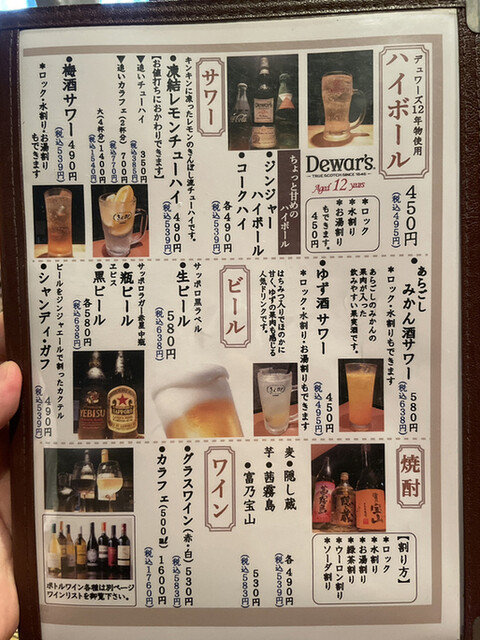 デュワーズ12年物使用
ハイボール
450円
(税込495円)
Dewar's.
TRUE SCOTCH SINCE 1846
Aged 12 years
*ロック
*水割り
*お湯割り
もできます。
450円
ちょっと甘めの
ハイボール
・ジンジャー
ハイボール
・コークハイ
各490円
(税込539円)
サワー
キンキンに凍ったレモンのきんぼし流チューハイです。
・凍結レモンチューハイ
490円
(税込539円)
【お値打ちにおかわりできます】
▼追いチューハイ
350円
(税込385円)
▼追いカラフェ(2杯分)
700円
(税込770円)
大(4杯分)1400円
(税込1540円)
・梅酒サワー
490円
(税込539円)
*ロック・水割り・お湯割り
もできます
・あらごし
みかん酒サワー
580円
(税込638円)
*ロック・水割り・お湯割りもできます
あらごしのみかんの
果肉が入った
飲みやすい果実酒です。
・ゆず酒サワー
450円
(税込495円)
*ロック・水割り・お湯割りもできます
はちみつ入りでほのかに
甘く、ゆずの果肉も感じる
人気ドリンクです。
ビール
サッポロ黒ラベル
・生ビール
580円
(税込638円)
サッポロラガー赤星中瓶
・瓶ビール
ヱビス
・黒ビール
各580円
(税込638円)
ビールをジンジャエールで割ったカクテル
・シャンディ・ガフ
490円
(税込539円)
YEBISU
SAPPORO
焼酎
【割り方】
*ロック
*水割り
*お湯割り
*緑茶割り
*ウーロン割り
*ソーダ割り
麦・隠し蔵
芋・茜霧島
各490円
(税込539円)
・富乃宝山
530円
(税込583円)
ワイン
・グラスワイン(赤・白)
530円
(税込583円)
・カラフェ(500㎖)
1600円
(税込1760円)
ボトルワイン各種は別ページ
ワインリストを御覧下さい。